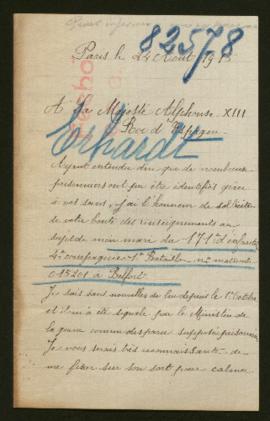 82578
Paris le 24 Août 1915
A Sa Majesté Alphonse XIII
Roi d'Espagne
Erhardt
Ayant entendu dire que de nombreux
prisonniers ont pu être identifiés grâce
à vos soins, j'ai l'honneur de solliciter
de votre bonté des renseignements au
sujet de mon mari du 171e d'infanterie
4e compagnie 1er Bataillon no matricule
01520 à Belfort.
Je suis sans nouvelles de lui depuis le 1er Octobre
et il m'a été signalé par le Ministère de
la guerre comme disparu supposé prisonnier
Je vous serais très reconnaissante de
me fixer sur son sort pour calmer